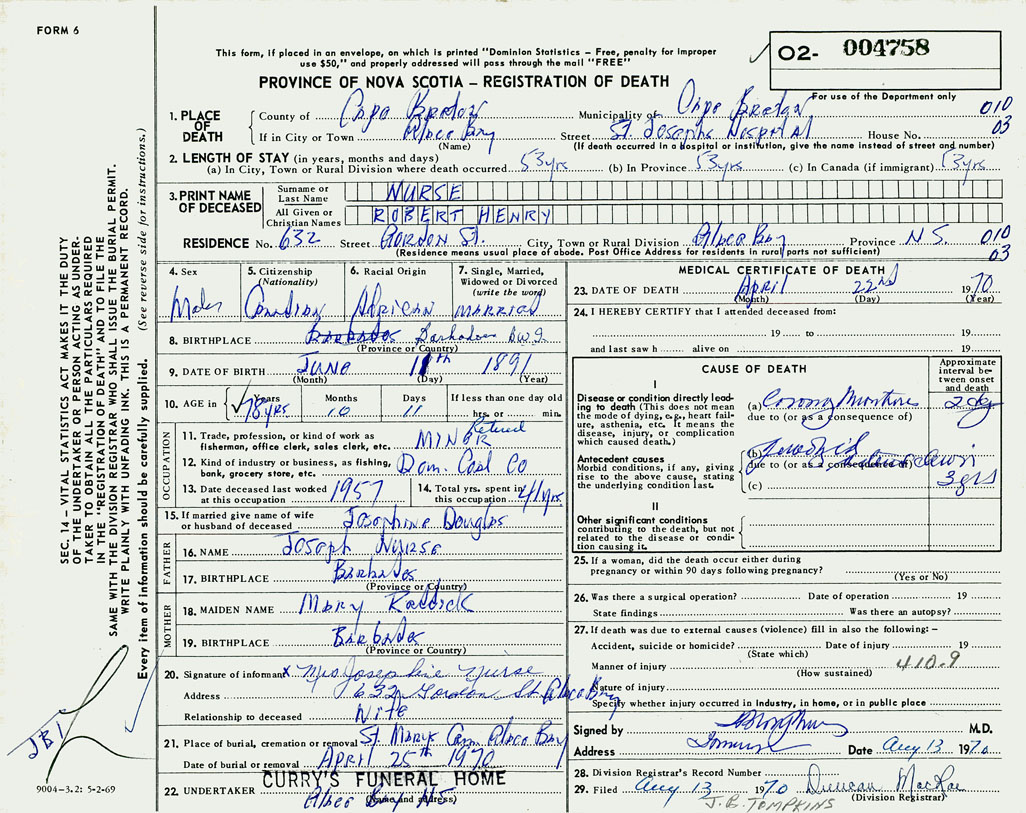 FORM 6
This form, if placed in an envelope, on which is printed "Dominion Statistics – Free, penalty for improper
use $50," and properly addressed will pass through the mail "FREE"
O2- 004758
For use of the Department only
PROVINCE OF NOVA SCOTIA – REGISTRATION OF DEATH
1. PLACE OF DEATH
County of Cape Breton Municipality of Cape Breton 010
If in City or Town Glace Bay Street St. Josephs Hospital House No. 03
(Name) (If death occurred in a hospital or institution, give the name instead of street and number)
2. LENGTH OF STAY (in years, months and days)
(a) In City, Town or Rural Division where death occurred 53 yrs (b) In Province 53 yrs (c) In Canada (if immigrant) 53 yrs
3. PRINT NAME OF DECEASED
Surname or Last Name NURSE
All Given or Christian Names ROBERT HENRY
RESIDENCE No. 632 Street Gordon St. City, Town or Rural Division Glace Bay Province N.S. 010
(Residence means usual place of abode. Post Office Address for residents in rural parts not sufficient) 03
4. Sex Male
5. Citizenship (Nationality) Canadian
6. Racial Origin African
7. Single, Married, Widowed or Divorced (write the word) MARRIED
8. BIRTHPLACE Barbados Barbados B.W.I.
(Province or Country)
9. DATE OF BIRTH June 11th 1891
(Month) (Day) (Year)
10. AGE in Years 78 yrs Months 10 Days 11 If less than one day old
hrs. or min.
OCCUPATION
11. Trade, profession, or kind of work as fisherman, office clerk, sales clerk, etc. MINER Retired
12. Kind of industry or business, as fishing, bank, grocery store, etc. Dom. Coal Co
13. Date deceased last worked at this occupation 1957
14. Total yrs. spent in this occupation 41 yrs
15. If married give name of wife or husband of deceased Josephine Douglas
FATHER
16. NAME Joseph Nurse
17. BIRTHPLACE Barbados
(Province or Country)
MOTHER
18. MAIDEN NAME Mary
19. BIRTHPLACE Barbados
(Province or Country)
20. Signature of informant x Mrs Josephine Nurse
Address 632 Gordon St Glace Bay
Relationship to deceased Wife
21. Place of burial, cremation or removal St Marys Cem. Glace Bay
Date of burial or removal APRIL 25th 1970
CURRY'S FUNERAL HOME
22. UNDERTAKER Glace Bay N.S.
(Name and address)
MEDICAL CERTIFICATE OF DEATH
23. DATE OF DEATH April 22nd 1970
(Month) (Day) (Year)
24. I HEREBY CERTIFY that I attended deceased from:
19 to 19
and last saw h alive on 19
CAUSE OF DEATH
Approximate interval between onset and death
I
Disease or condition directly leading to death (This does not mean the mode of dying, e.g., heart failure, asthenia, etc. It means the disease, injury, or complication which caused death.)
(a)
due to (or as a consequence of)
Antecedent causes
Morbid conditions, if any, giving rise to the above cause, stating the underlying condition last.
(b)
due to (or as a consequence of)
(c) 3 yrs
II
Other significant conditions
contributing to the death, but not related to the disease or condition causing it.
25. If a woman, did the death occur either during
pregnancy or within 90 days following pregnancy?
(Yes or No)
26. Was there a surgical operation? Date of operation 19
State findings Was there an autopsy?
27. If death was due to external causes (violence) fill in also the following: –
Accident, suicide or homicide? Date of injury 19
(State which)
Manner of injury 410.9
(How sustained)
Nature of injury
Specify whether injury occurred in Industry, in home, or in public place
Signed by M.D.
Address Date Aug 13 1970
28. Division Registrar's Record Number
29. Filed Aug 13 1970 Duncan MacRae
(Division Registrar)
J.B. TOMPKINS
SEC. 14 – VITAL STATISTICS ACT MAKES IT THE DUTY
OF THE UNDERTAKER OR PERSON ACTING AS UNDER-
TAKER TO OBTAIN ALL THE PARTICULARS REQUIRED
IN THE "REGISTRATION OF DEATH" AND TO FILE THE
SAME WITH THE DIVISION REGISTRAR WHO SHALL ISSUE THE BURIAL PERMIT.
WRITE PLAINLY WITH UNFADING INK. THIS IS A PERMANENT RECORD.
Every item of information should be carefully supplied. (See reverse side for instructions.)
JBT
9004–3.2: 5-2-69